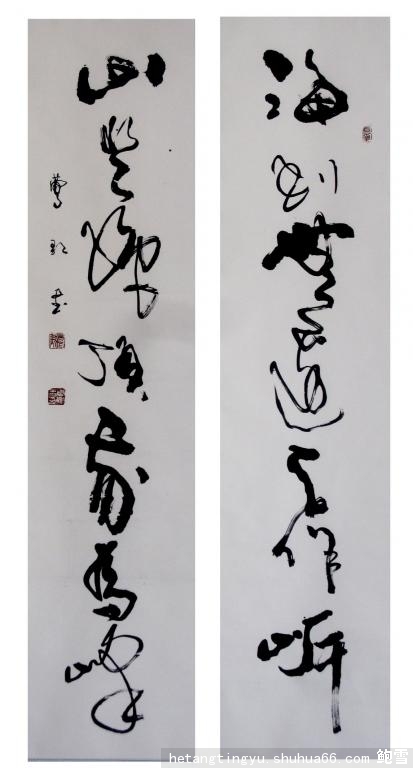 海到無邊天作岸
山登絕頂我為峰
hetangtingyu.shuhua66.com 鲍雪